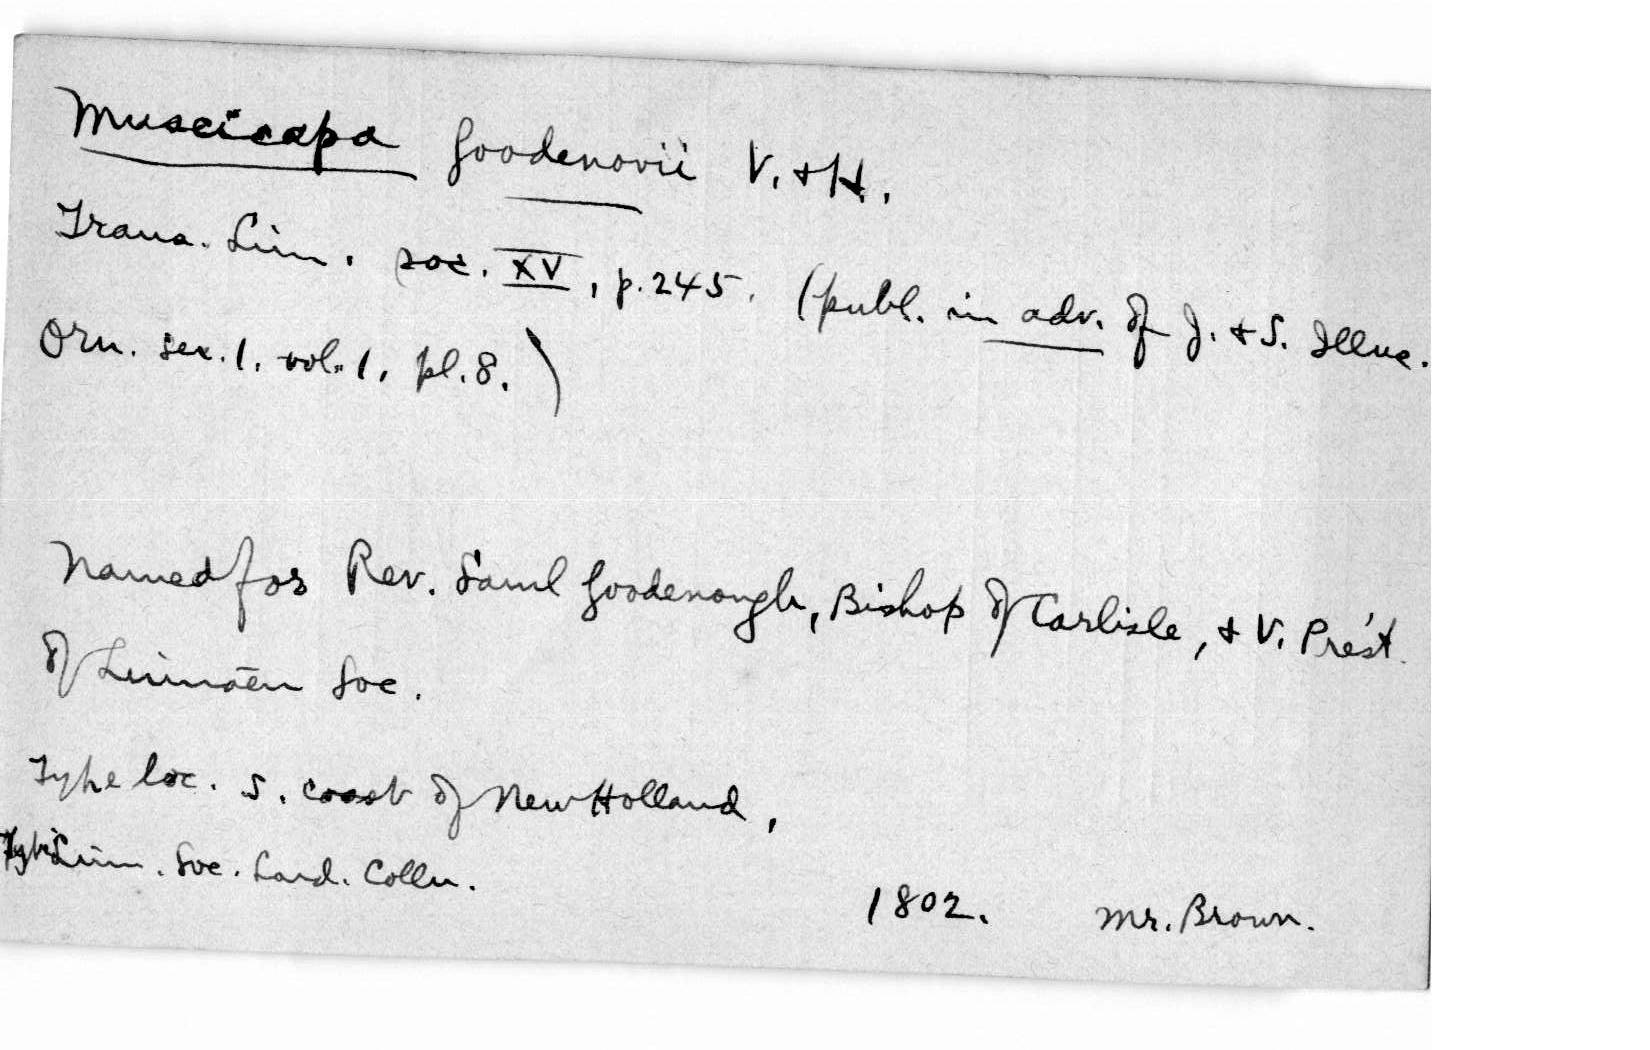 Muscicapa Goodenovii V. & H.
Trans. Linn. Soc. XV, p. 245. (publ. in adv. of J. & S. Illus.
Orn. ser. 1. vol. 1, pl. 8.)
Named for Rev. Saml Goodenough, Bishop of Carlisle, & V. Prest.
of Linnaen Soc.
Type loc. S. coast of New Holland,
Type Linn. Soc. Lond. Colln.
1802. Mr. Brown.